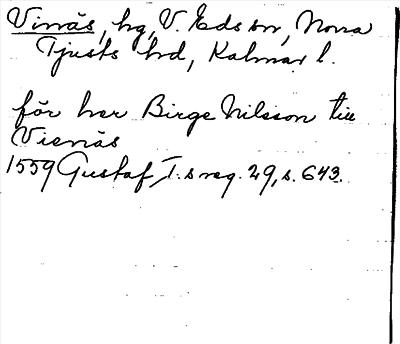 Vinäs, hg, V. Eds sn, Norra
Tjusts hd, Kalmar l.
för her Birge Nilsson till
Vienäs
1559 Gustaf I:s reg. 29, s. 643.